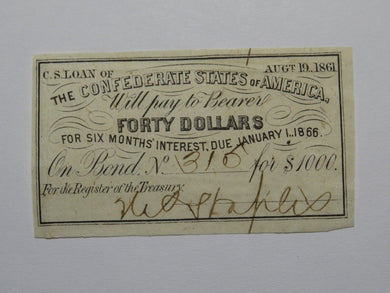 C.S. LOAN OF AUGT 19., 1861
THE CONFEDERATE STATES OF AMERICA.
Will pay to Bearer
FORTY DOLLARS
FOR SIX MONTHS' INTEREST, DUE JANUARY 1., 1866.
On Bond, No. 315 for $1000.
For the Register of the Treasury.